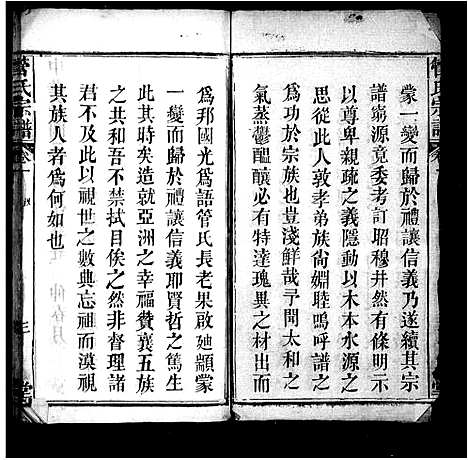 蒙一變而歸於禮讓信義乃遂續其宗
譜窮源竟委考訂昭穆井然有條明示
以尊卑親疏之義隱動以木本水源之
思從此人敦孝弟族尚婣睦嗚呼譜之
為功於宗族也豈淺鮮哉子間太和之
氣蒸鬱醞釀必有特達瑰異之材出而
為邦國光為語管氏長老果啟廸顓蒙
一變而歸於禮讓信義耶賢哲之篤生
此其時矣造就亞洲之幸福贊襄五族
之共和吾不禁拭目俟之然非督理諸
君不及此以視世之數典忘祖而漠視
其族人者為何如也
管氏宗譜
卷一
三